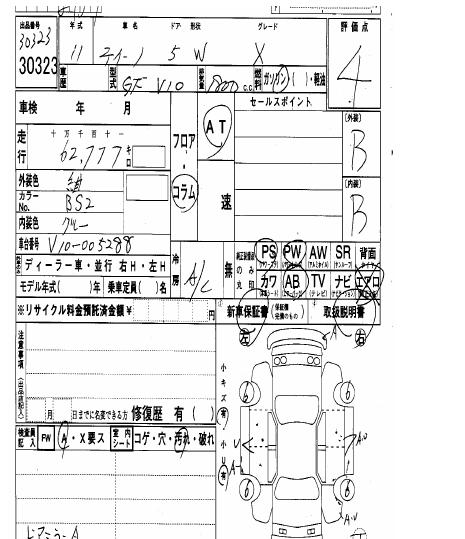 出品番号 年式 車名 ドア 形状 グレード 評価点
30323 11 ティーノ 5 W X 4
30323 車歴 型式 GF V10 排気量 1800 c.c. 燃料 ガソリン・( )・軽油
車検 年 月 セールスポイント
走行 十万千百十一 フロア・コラム AT [外装]
62,777 キロ B
外装色 紺
カラーNo. BS2 速 [内装]
内装色 グレー B
車台番号 V10-005288 冷房 A/C 無 PS PW AW SR 背面
ディーラー車・並行 右H・左H のみ
モデル年式( )年 乗車定員( )名 丸印 カワ AB TV ナビ エアロ
※リサイクル料金預託済金額 ¥ 円 新車保証書 取扱説明書
左 右
注意事項(出品店記入) 小キズ(有)
月 日までに名変できる方 修復歴 有( ) 小U(有)
検査員記入 FW A・X要ス 室内シート コゲ・穴・汚れ・破れ
A
6 6
U A・U
A
6 6
A・U
ドアミラーA